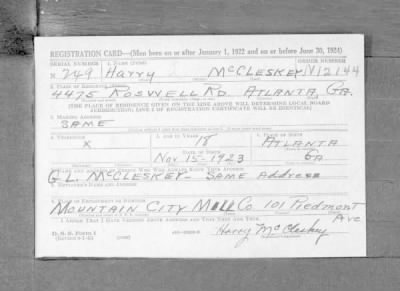 REGISTRATION CARD—(Men born on or after January 1, 1922 and on or before June 30, 1924)
SERIAL NUMBER 1. NAME (Print) ORDER NUMBER
N 249 Harry McCleskey N12144
2. PLACE OF RESIDENCE
4475 Roswell Rd. Atlanta Ga.
[THE PLACE OF RESIDENCE GIVEN ON THE LINE ABOVE WILL DETERMINE LOCAL BOARD
JURISDICTION; LINE 2 OF REGISTRATION CERTIFICATE WILL BE IDENTICAL]
3. MAILING ADDRESS
SAME
4. TELEPHONE 5. AGE IN YEARS 6. PLACE OF BIRTH
X 18 Atlanta
DATE OF BIRTH
Nov 15-1923 Ga
7. NAME AND ADDRESS OF PERSON WHO WILL ALWAYS KNOW YOUR ADDRESS
G.L. McCleskey - Same Address
8. EMPLOYER'S NAME AND ADDRESS
Mountain City Mill Co 101 Piedmont
Ave
I AFFIRM THAT I HAVE VERIFIED ABOVE ANSWERS AND THAT THEY ARE TRUE.
D. S. S. Form 1
Harry McCleskey